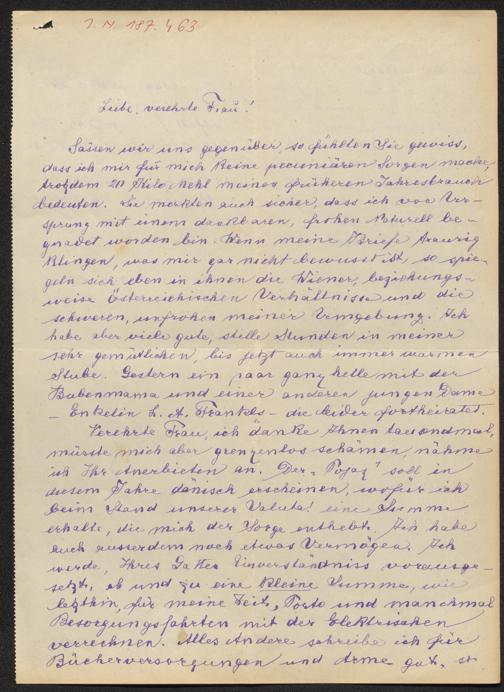 J. N. 187.463
Liebe, verehrte Frau!
Sässen wir uns gegenüber, so fühlten Sie gewiss,
dass ich mir für mich keine pecuniären Sorgen mache,
trotzdem 20 Kilo Mehl meinen früheren Jahresbrauch
bedeuten. Sie merkten auch sicher, dass ich von Ur-
sprung mit einem dankbaren, frohen Naturell be-
gnadet worden bin. Wenn meine Briefe traurig
klingen, was mir gar nicht bewusst ist, so spie-
geln sich eben in ihnen die Wiener, beziehungs-
weise Österreichischen Verhältnisse und die
schweren, unfrohen meiner Umgebung. Ich
habe aber viele gute, stille Stunden in meiner
sehr gemütlichen, bis jetzt auch immer warmen
Stube. Gestern ein paar ganz helle mit der
Bubenmama und einer anderen jungen Dame
– Enkelin L. A. Frankls – die leider fortheiratet.
Verehrte Frau, ich danke Ihnen tausendmal,
müsste mich aber grenzenlos schämen, nähme
ich Ihr Anerbieten an. Der „Pojaz" soll in
diesem Jahre dänisch erscheinen, wofür ich
beim Stand unserer Valuta! eine Summe
erhalte, die mich der Sorge enthebt. Ich habe
auch ausserdem noch etwas Vermögen. Ich
werde, Ihres Gatten Einverständniss vorausge-
setzt, ab und zu eine kleine Summe, wie
letzthin, für meine Zeit, Porto und manchmal
Besorgungsfahrten mit der Elektrischen
verrechnen. Alles Andere schreibe ich für
Bücherversorgungen und Arme gut, so